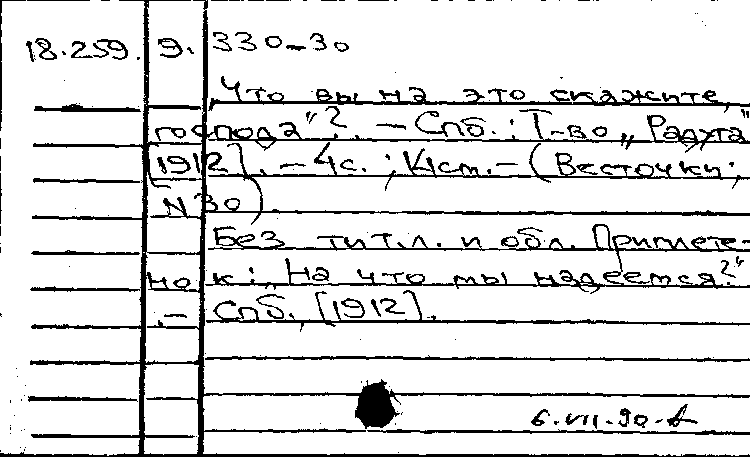 18.259. 9. 330-30
„Что вы на это скажите,
господа"?. - Спб.: Т-во „Радуга"
[1912]. - 4с.; 14см. - (Весточки;
N30).
Без тит.л. и обл. Приплете-
но к: „На что мы надеемся?"
.- Спб., [1912].
6.VII.90.